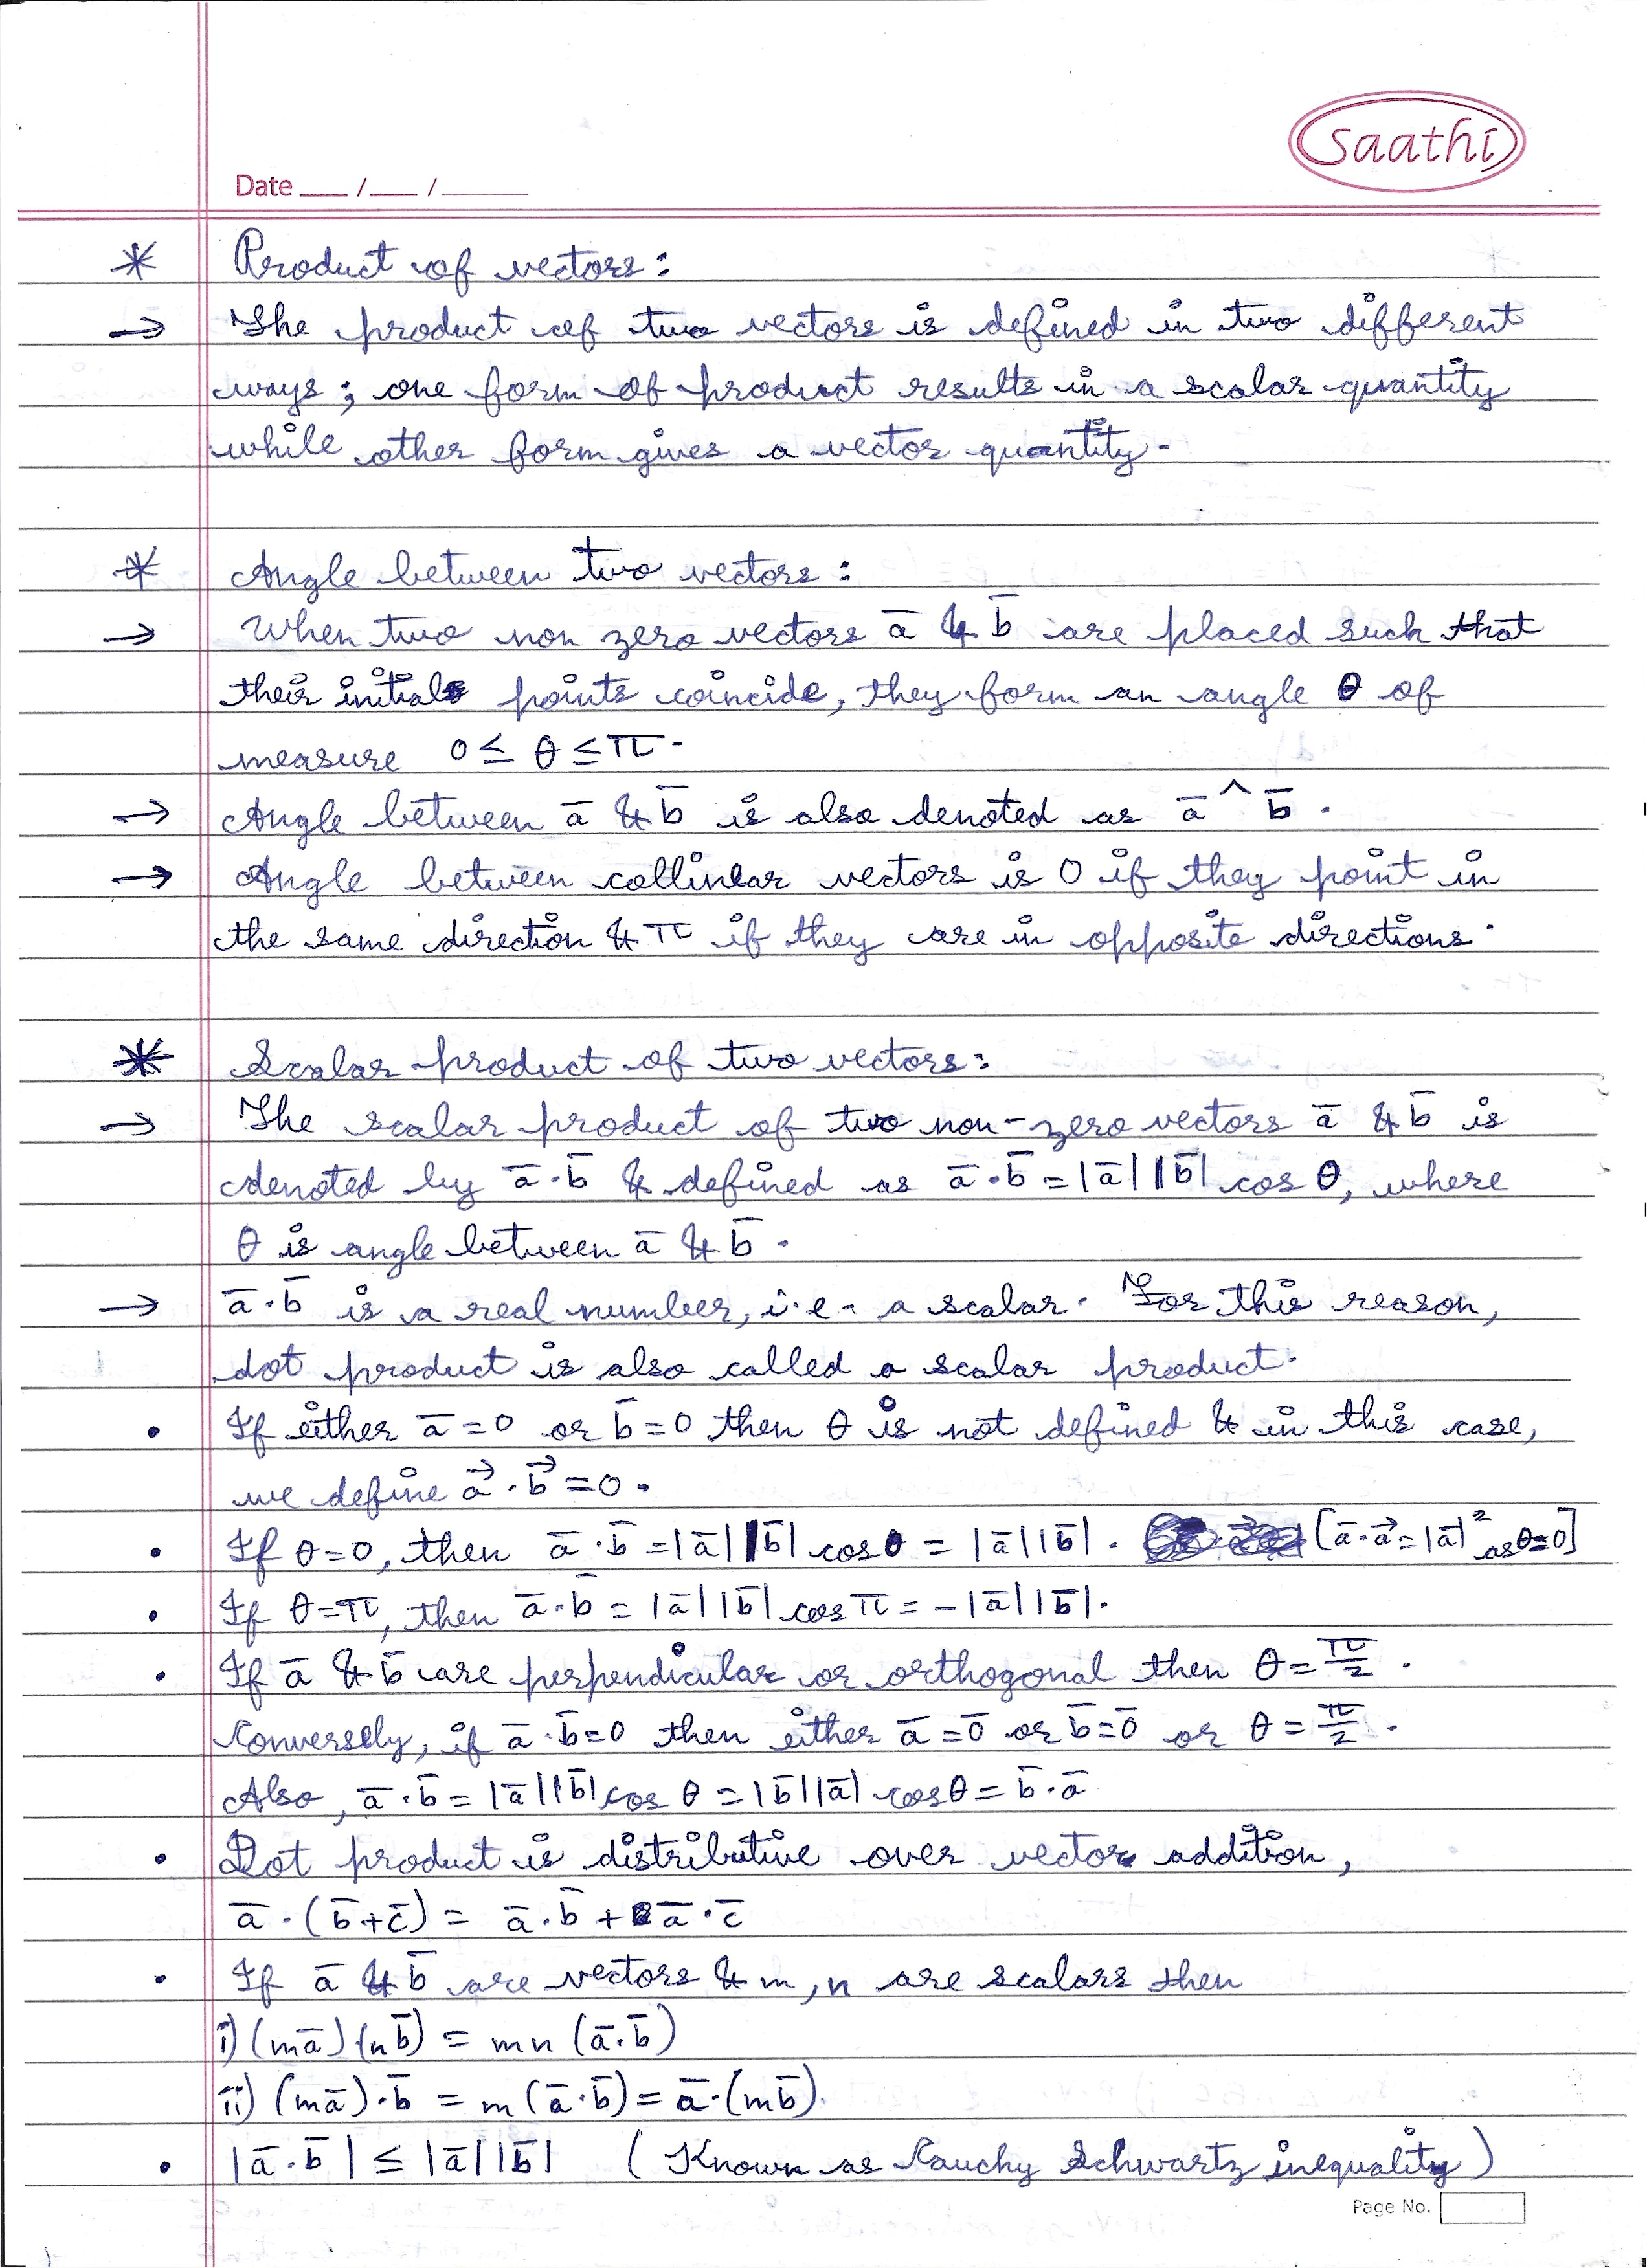 saathi
Date ___ / ___ / ______
* Product of vectors :
→ The product of two vectors is defined in two different
ways ; one form of product results in a scalar quantity
while other form gives a vector quantity.
* Angle between two vectors :
→ When two non zero vectors a̅ & b̅ are placed such that
their initial points coincide, they form an angle θ of
measure 0 ≤ θ ≤ π.
→ Angle between a̅ & b̅ is also denoted as a̅ ^ b̅ .
→ Angle between collinear vectors is 0 if they point in
the same direction & π if they are in opposite directions.
* Scalar product of two vectors :
→ The scalar product of two non-zero vectors a̅ & b̅ is
denoted by a̅ · b̅ & defined as a̅ · b̅ = |a̅| |b̅| cos θ, where
θ is angle between a̅ & b̅ .
→ a̅ · b̅ is a real number, i.e. a scalar. For this reason,
dot product is also called a scalar product.
• If either a̅ = 0 or b̅ = 0 then θ is not defined & in this case,
we define a⃗ · b⃗ = 0 .
• If θ = 0, then a̅ · b̅ = |a̅| |b̅| cos θ = |a̅| |b̅| . [a̅ · a⃗ = |a̅|² as θ = 0]
• If θ = π, then a̅ · b̅ = |a̅| |b̅| cos π = - |a̅| |b̅| .
• If a̅ & b̅ are perpendicular or orthogonal then θ = π/2 .
Conversely, if a̅ · b̅ = 0 then either a̅ = 0̅ or b̅ = 0̅ or θ = π/2 .
Also, a̅ · b̅ = |a̅| |b̅| cos θ = |b̅| |a̅| cos θ = b̅ · a̅
• Dot product is distributive over vector addition,
a̅ · (b̅ + c̅) = a̅ · b̅ + a̅ · c̅
• If a̅ & b̅ are vectors & m, n are scalars then
i) (ma̅) · (nb̅) = mn (a̅ · b̅)
ii) (ma̅) · b̅ = m (a̅ · b̅) = a̅ · (mb̅).
• |a̅ · b̅| ≤ |a̅| |b̅| (Known as Cauchy Schwartz inequality)
Page No.